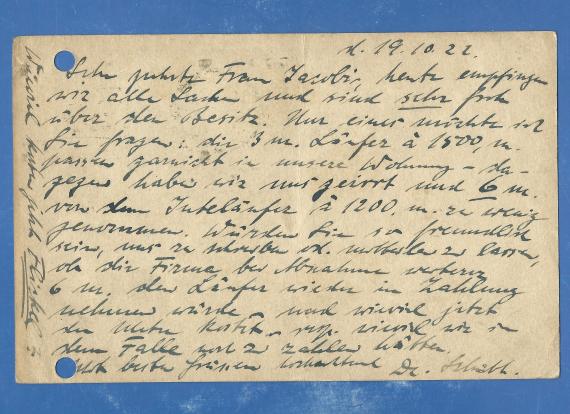 d. 19.10.22.
Sehr geehrte Frau Jacobi, heute empfingen
wir alle Sachen und sind sehr froh
über den Besitz. Nur eines möchte ich
Sie fragen: die 3 m. Läufer à 1500, m.
passen garnicht in unsere Wohnung – da-
gegen haben wir uns geirrt und 6 m.
von dem Juteläufer à 1200. m. zu wenig
genommen. Würden Sie so freundlich
sein, uns zu schreiben od. zu lassen,
ob die Firma bei Abnahme weiterer
6 m. den Läufer wieder in Zahlung
nehmen würde und wieviel jetzt
der Meter kostet, resp. wieviel wir in
dem Falle noch zu zahlen hätten.
Mit besten Grüssen Dr.
Wieviel kosten jetzt